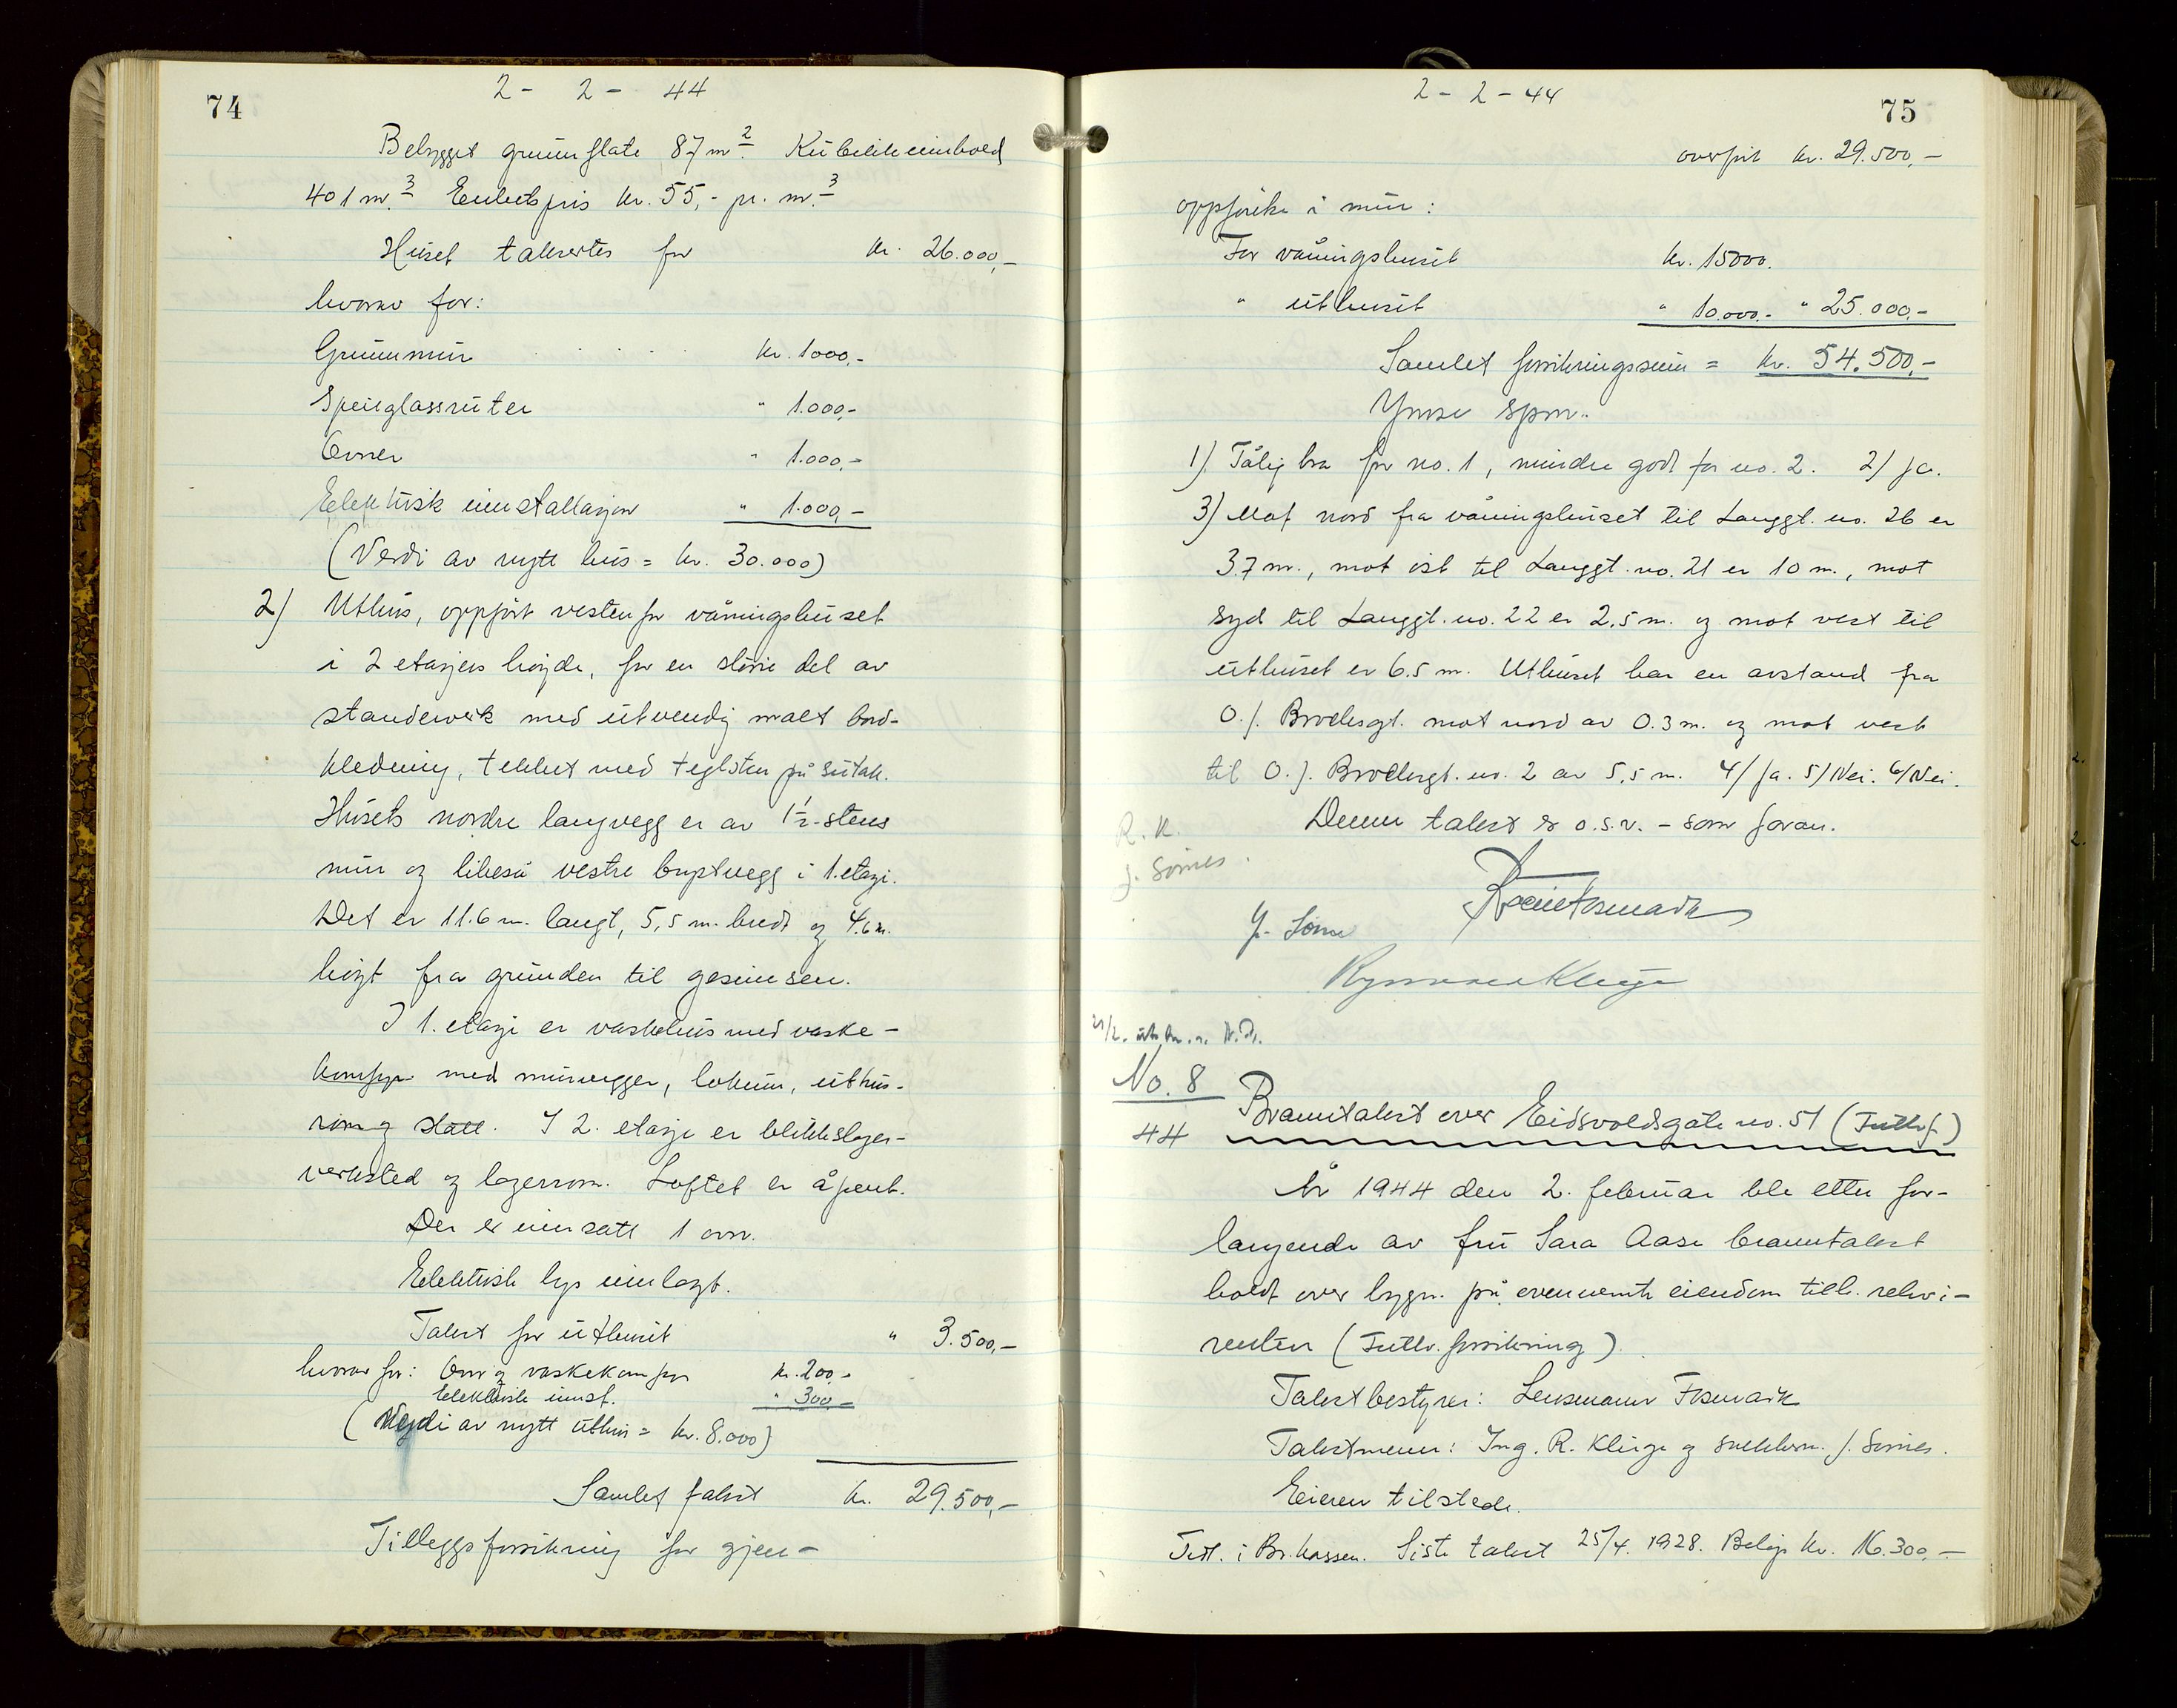 74
2 - 2 - 44
Bebygget grunnflate 87 m². Kubikkinnhold
401 m.³ Enhetspris kr. 55,- pr. m.³
Huset takseres for kr. 26.000,-
hvorav for:
Grunnmur . . . . kr. 1000,-
Speilglassruter " 1.000,-
Ovner " 1.000,-
Elektrisk innstallasjon " 1.000,-
(Verdi av nytt hus = kr. 30.000)
2) Uthus, oppført vestenfor våningshuset
i 2 etasjers høyde, for en større del av
standerverk med utvendig malt bord-
kledning, tekket med teglsten på sutak.
Husets nordre langvegg er av 1½-stens
mur og likeså vestre langvegg i 1. etasje.
Det er 11.6 m. langt, 5,5 m. bredt og 4.6 m.
høgt fra grunden til gesimsen.
I 1. etasje er vaskehus med vaske-
kompe med murvegger, lokum, uthus-
rom og stall. I 2. etasje er blikkslager-
verksted og lagerrom. Loftet er åpent.
Der er innsatt 1 ovn.
Elektrisk lys innlagt.
Takst for uthuset " 3.500,-
hvorav for: Ovn og vaskekompe kr. 200,-
Elektriske innst. " 300,-
(Verdi av nytt uthus = kr. 8.000)
Samlet takst kr. 29.500,-
Tilleggsforsikring for gjen-
75
2 - 2 - 44
overført kr. 29.500,-
oppførelse i mur:
For våningshuset kr. 15000.
" uthuset " 10.000.- " 25.000,-
Samlet forsikringssum = kr. 54.500,-
Ymse spm.
1) Tålig bra for no. 1, mindre godt for no. 2. 2) Ja.
3) Mot nord fra våningshuset til Langgt. no. 26 er
3.7 m., mot øst til Langgt. no. 21 er 10 m., mot
syd til Langgt. no. 22 er 2,5 m. og mot vest til
uthuset er 6.5 m. Uthuset har en avstand fra
O. J. Brochsgt. mot nord av 0.3 m. og mot vest
til O. J. Brochsgt. no. 2 av 5,5 m. 4/ Ja. 5/ Nei. 6/ Nei.
Denne takst er o.s.v. - som foran.
R. K.
J. Sømes
J. Sømes
Rasmus Kluge
No. 8
44
Branntakst over Eidsvoldsgate no. 51 (Frilln.f.)
År 1944 den 2. februar ble etter for-
langende av fru Sara Aase branntakst
holdt over bygn. på ovennevnte eiendom tilh. rekvi-
renten (Frillv. forsikring)
Takstbestyrer: Lensmann Fosmark
Takstmenn: Ing. R. Kluge og snekkerm. J. Sømes.
Eieren tilstede.
i Br.kassen. Siste takst 25/4. 1928. Beløp kr. 16.300,-